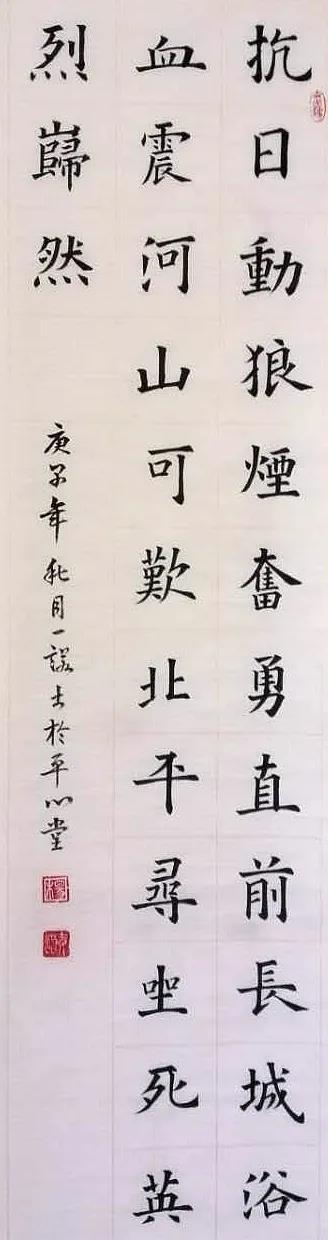 抗日動狼煙奮勇直前長城浴
血震河山可歎北平尋㘴死英
烈巋然
庚子年秋月一謬士於平心堂